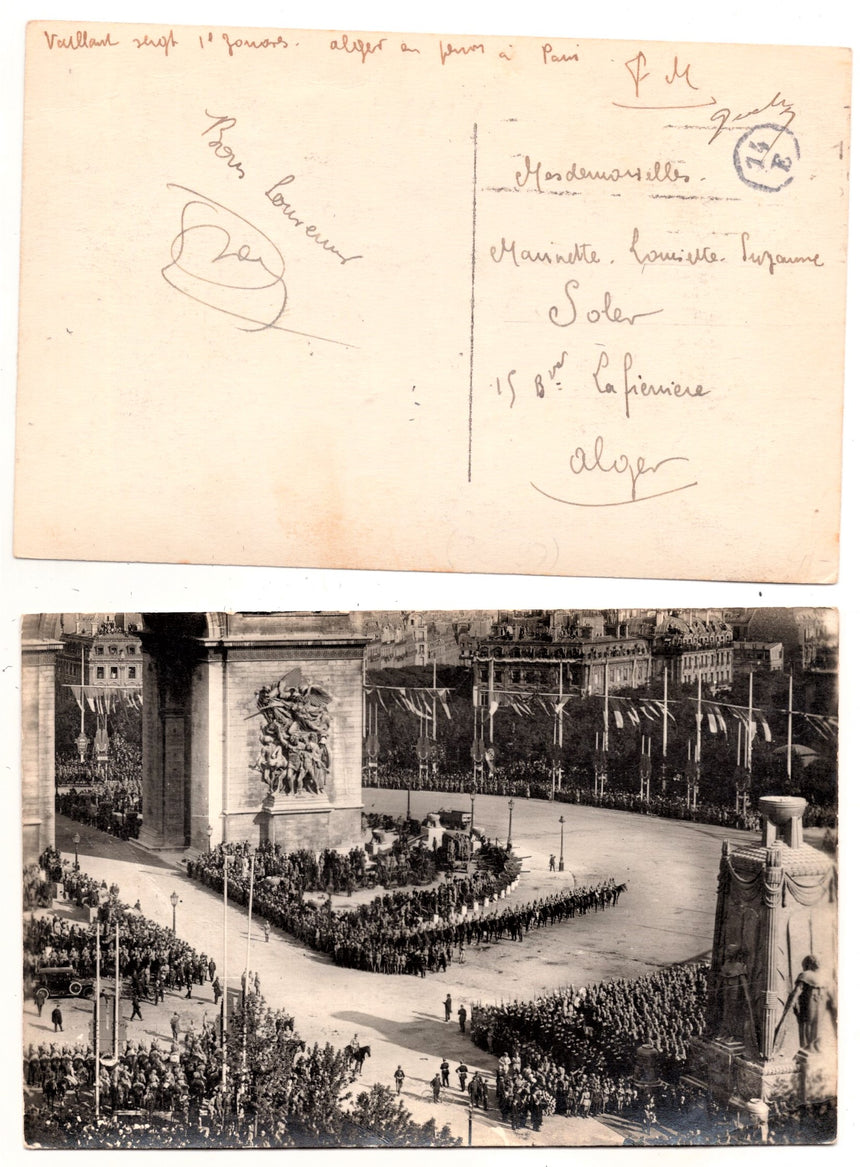 Vaillant sergt 1e Zouaves. Alger en perm à Paris
F M
Bons Souvenirs
14
E
Mesdemoiselles.
Marinette. Louisette. Suzanne
Soler
15 Bver Lafierriere
Alger